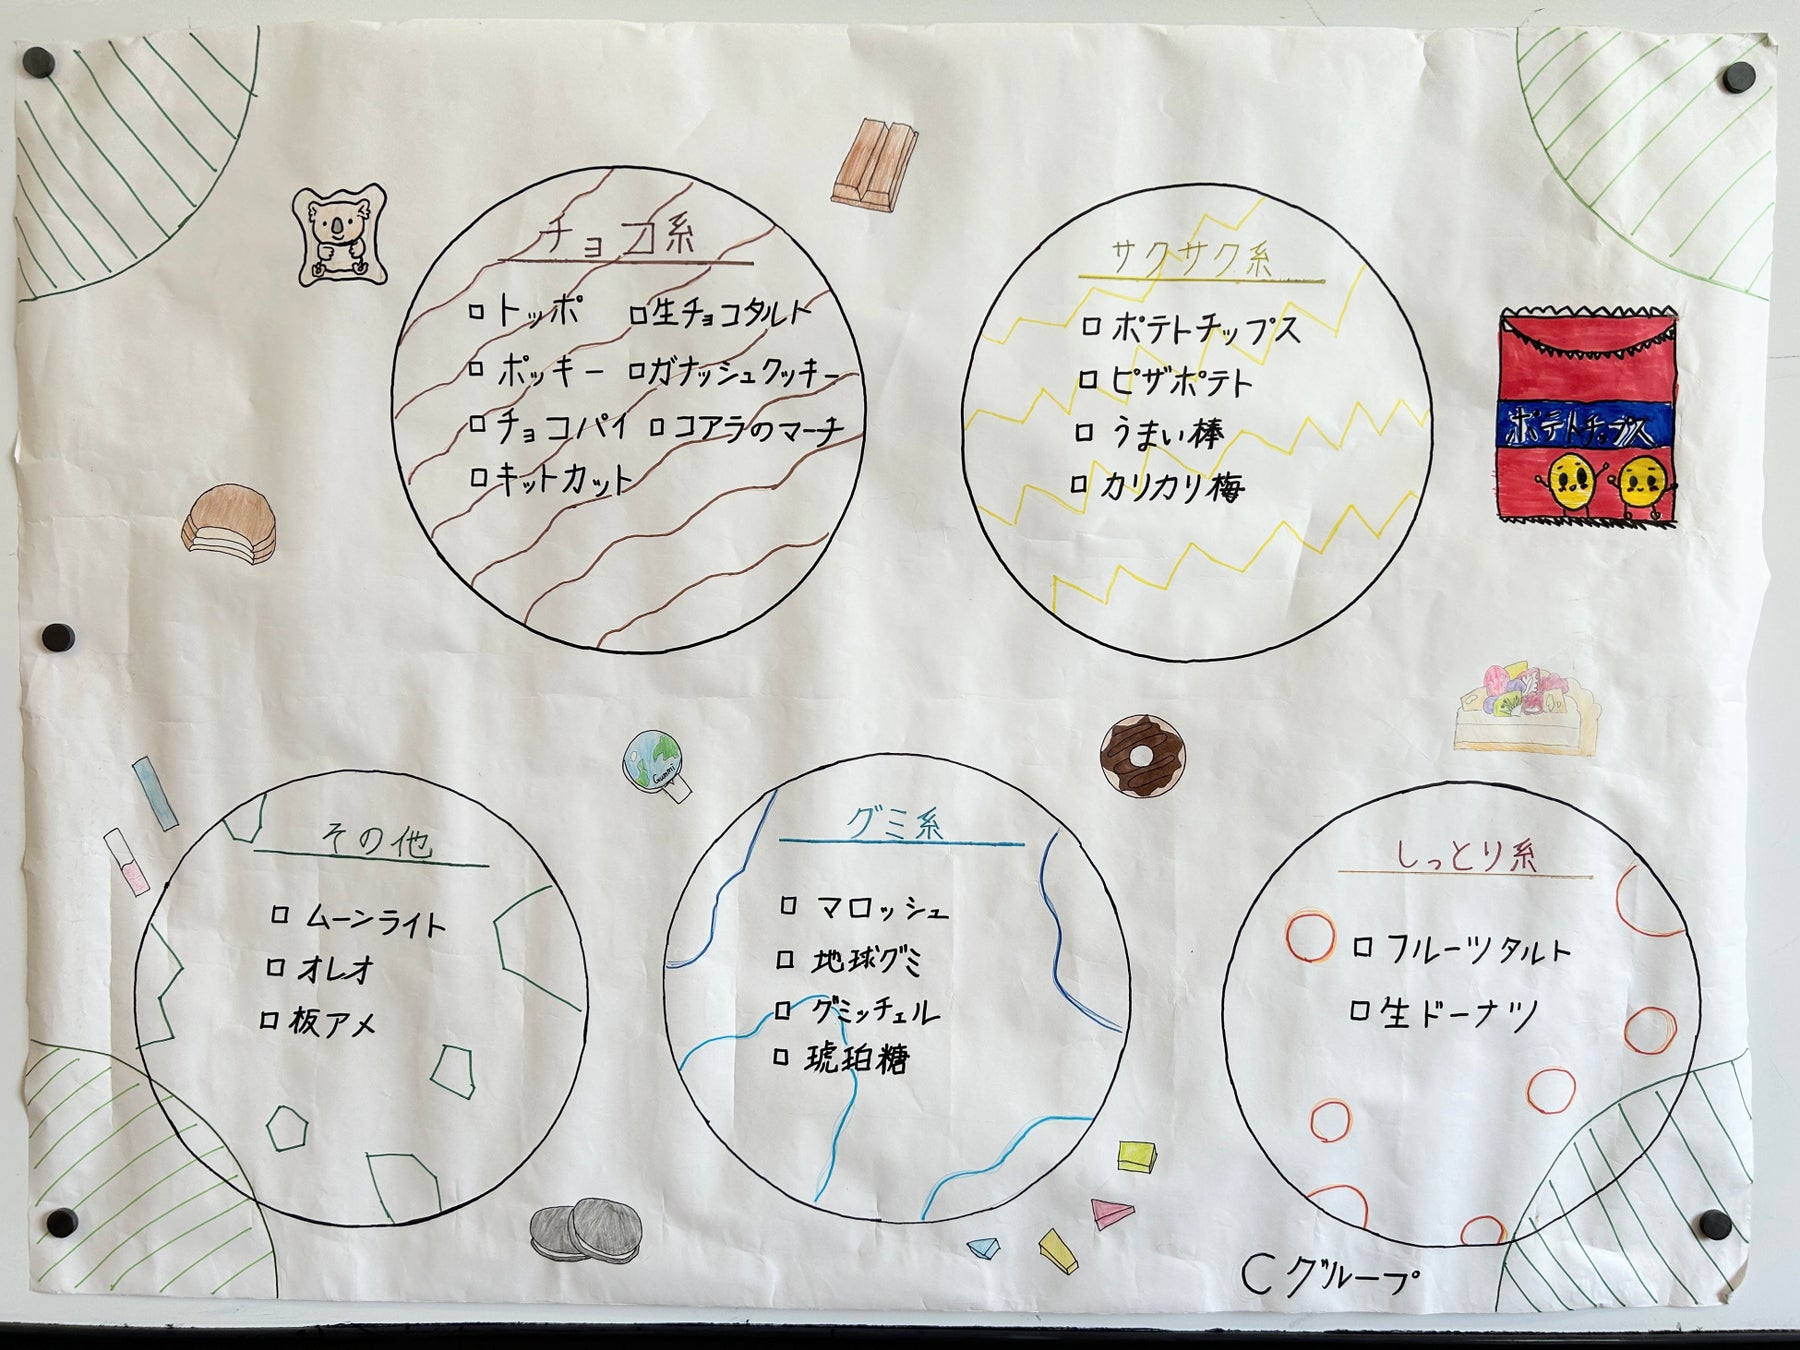 チョコ系
□トッポ □生チョコタルト
□ポッキー □ガナッシュクッキー
□チョコパイ □コアラのマーチ
□キットカット
サクサク系
□ポテトチップス
□ピザポテト
□うまい棒
□カリカリ梅
ポテトチップス
その他
□ムーンライト
□オレオ
□板アメ
Gummi
グミ系
□マロッシュ
□地球グミ
□グミッチェル
□琥珀糖
しっとり系
□フルーツタルト
□生ドーナツ
Cグループ